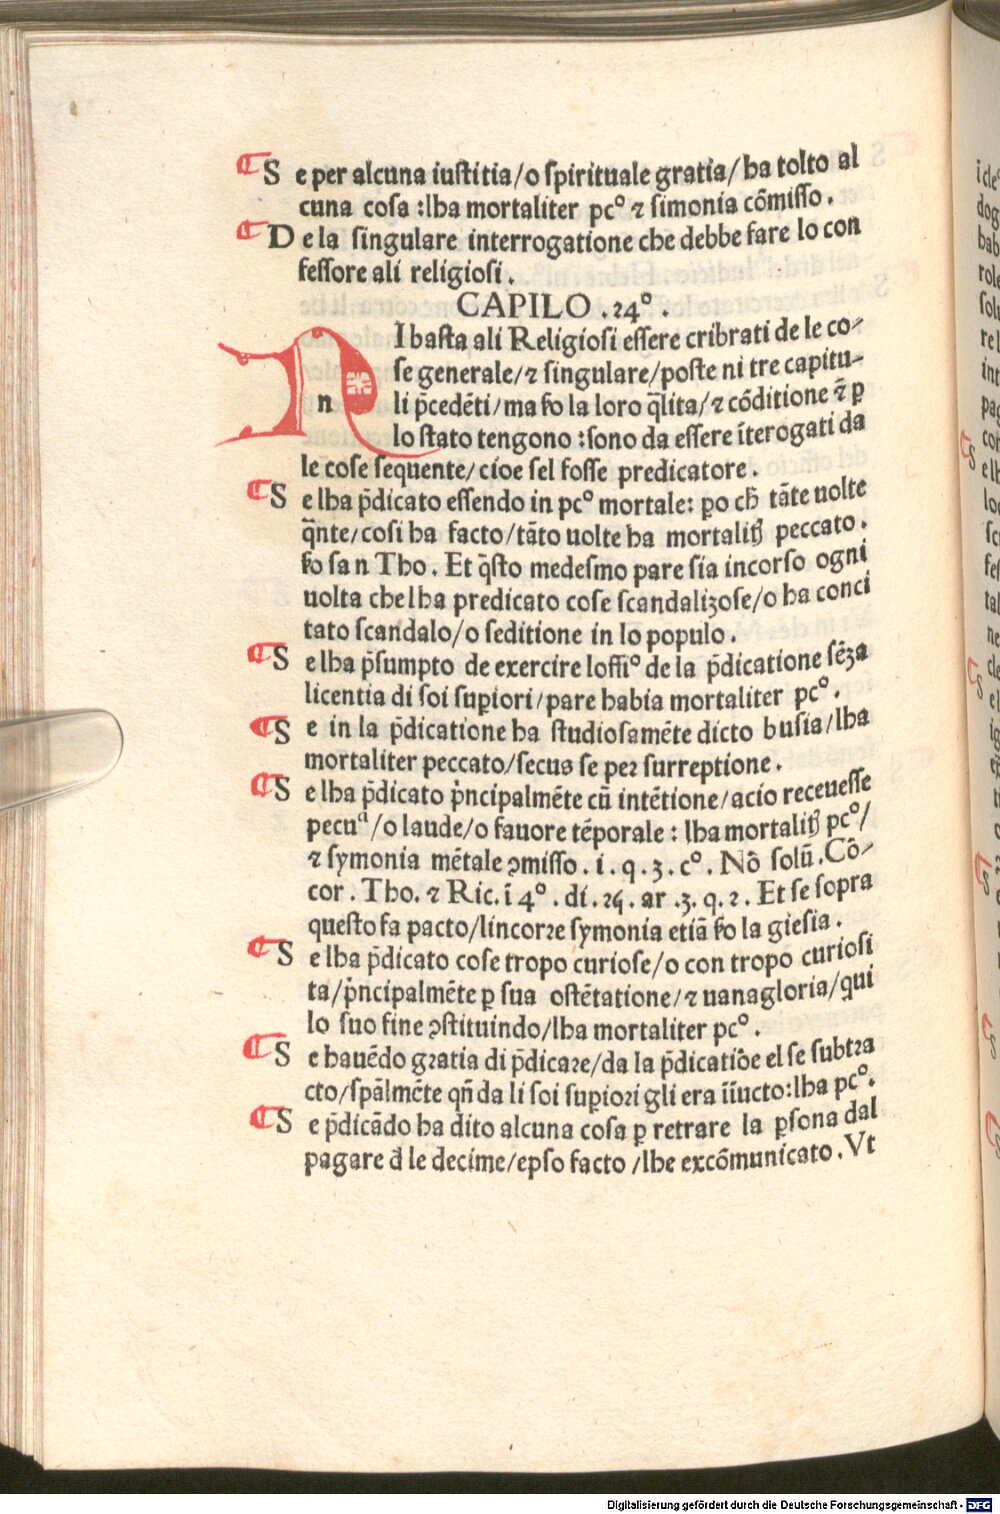 ¶ Se per alcuna iuſtitia/o ſpirituale gratia/ha tolto al
cuna coſa :lha mortaliter pcº ⁊ ſimonia cõmiſſo.
¶ De la ſingulare interrogatione che debbe fare lo con
feſſore ali religioſi.
CAPILO .24º.
NIbaſta ali Religioſi eſſere cribrati de le co⸗
ſe generale/⁊ ſingulare/poſte ni tre capitu⸗
li p̄cedẽti/ma ẜo la loro q̄lita/⁊ cõditione ꝛ̃ ꝑ
lo ſtato tengono :ſono da eſſere ĩterogati da
le coſe ſequente/cioe ſel foſſe predicatore.
¶ Se lha p̄dicato eſſendo in pcº mortale: ꝑo ch̄ tãte uolte
q̄nte/coſi ha facto/tãto uolte ha mortalit̃ peccato.
ẜo ſan Tho. Et q̄ſto medeſmo pare ſia incorſo ogni
uolta chelha predicato coſe ſcandalizoſe/o ha conci
tato ſcandalo/o ſeditione in lo populo.
¶ Se lha p̄ſumpto de exercire loffiº de la p̄dicatione ſẽza
licentia di ſoi ſuꝑiori/pare habia mortaliter pcº.
¶ Se in la p̄dicatione ha ſtudioſamẽte dicto buſia/lha
mortaliter peccato/ſecus ſe peꝛ ſurreptione.
¶ Se lha p̄dicato p̓ncipalmẽte cũ intẽtione/acio receueſſe
pecuª/o laude/o fauore tẽporale : lha mortalit̃ pcº/
⁊ ſymonia mẽtale ꝯmiſſo. i. q. 3. cº. Nõ ſolũ. Cõ⸗
cor. Tho. ⁊ Ric. ĩ 4º. di. 25. ar .3. q. 2. Et ſe ſopra
queſto fa pacto/lincoꝛꝛe ſymonia etiã ẜo la gieſia.
¶ Se lha p̄dicato coſe tropo curioſe/o con tropo curioſi
ta/p̓ncipalmẽte ꝑ ſua oſtẽtatione/⁊ uanagloria/qui
lo ſuo fine ꝯſtituindo/lha mortaliter pcº.
¶ Se hauẽdo gꝛatia di p̄dicaꝛe/da la p̄dicatiõe el ſe ſubtꝛa
cto/ſpãlmẽte qñ da li ſoi ſuꝑioꝛi gli era ĩiũcto:lha pcº.
¶ Se p̄dicãdo ha dito alcuna coſa ꝑ retrare la ꝑſona dal
pagare đ le decime/epſo facto /lhe excõmunicato. Vt
Digitalisierung gefördert durch die Deutsche Forschungsgemeinschaft - DFG